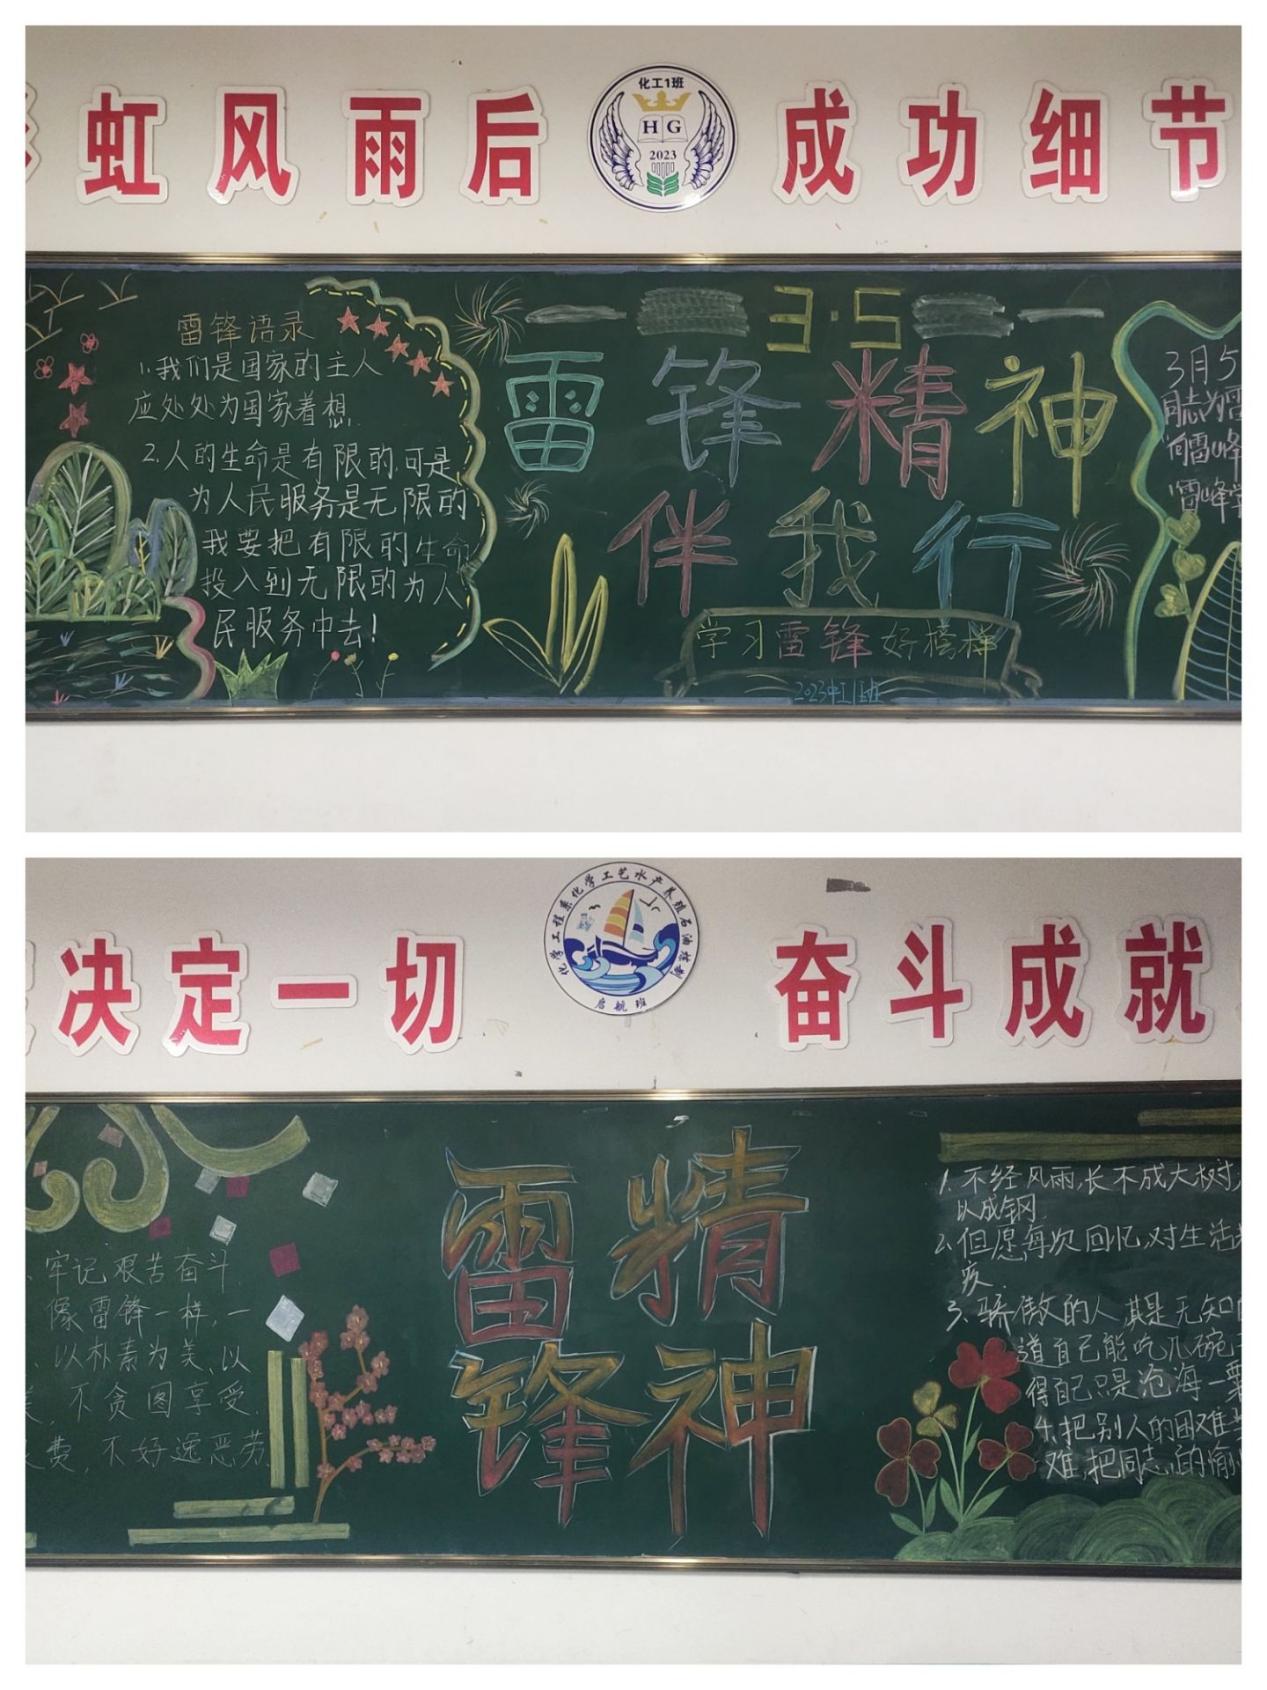 虹风雨后
化工1班
HG
2023
成功细节
雷锋语录
1.我们是国家的主人
应处处为国家着想.
2.人的生命是有限的.可是
为人民服务是无限的
我要把有限的生命
投入到无限的为人
民服务中去!
3·5
雷锋精神
伴我行
学习雷锋好榜样
3月5
同志为雷
向雷峰
雷峰学
决定一切
化学工程系化学工艺水产养殖石油炼制
启航班
奋斗成就
牢记艰苦奋斗
像雷锋一样,一
、以朴素为美、以
,不贪图享受
费,不好逸恶劳.
雷锋
精神
1.不经风雨,长不成大树,
以成钢
2.但愿每次回忆,对生活
疚.
3.骄傲的人,其是无知
道自己能吃几碗
得自己只是沧海一粟
4.把别人的困难
难,把同志的愉